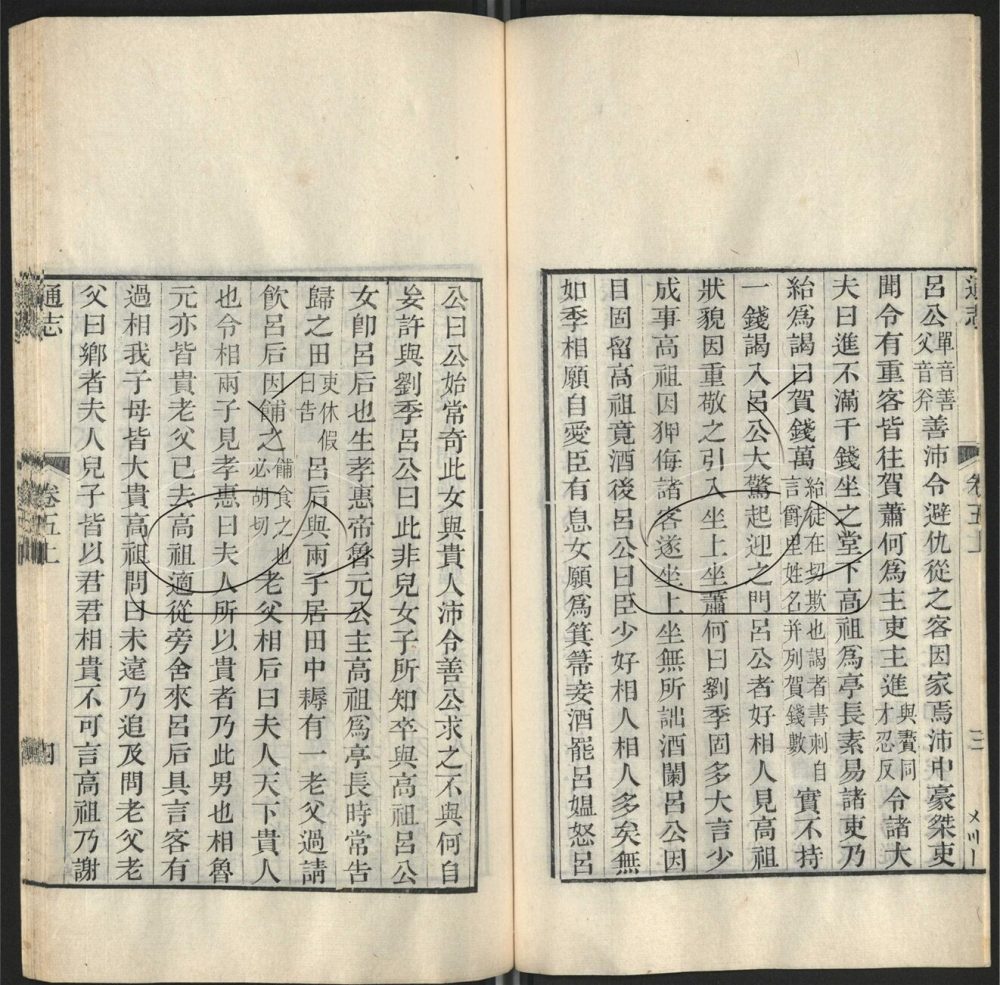 通志
卷五上
三
呂公單音善父音斧善沛令避仇從之客因家焉沛中豪桀吏
聞令有重客皆往賀蕭何爲主吏主進與賮同才忍反令諸大
夫曰進不滿千錢坐之堂下高祖爲亭長素易諸吏乃
紿爲謁曰賀錢萬紿徒在切欺也謁者書刺自言爵里姓名并列賀錢數實不持
一錢謁入呂公大驚起迎之門呂公者好相人見高祖
狀貌因重敬之引入坐上坐蕭何曰劉季固多大言少
成事高祖因狎侮諸客遂坐上坐無所詘酒闌呂公因
目固留高祖竟酒後呂公曰臣少好相人相人多矣無
如季相願自愛臣有息女願爲箕箒妾酒罷呂媼怒呂
公曰公始常奇此女與貴人沛令善公求之不與何自
妄許與劉季呂公曰此非兒女子所知卒與高祖呂公
女卽呂后也生孝惠帝魯元公主高祖爲亭長時常告
歸之田吏休假曰告呂后與兩子居田中耨有一老父過請
飲呂后因餔之餔食之也必胡切老父相后曰夫人天下貴人
也令相兩子見孝惠曰夫人所以貴者乃此男也相魯
元亦皆貴老父已去高祖適從旁舍來呂后具言客有
過相我子母皆大貴高祖問曰未遠乃追及問老父老
父曰鄉者夫人兒子皆以君君相貴不可言高祖乃謝
通志
卷五上
四